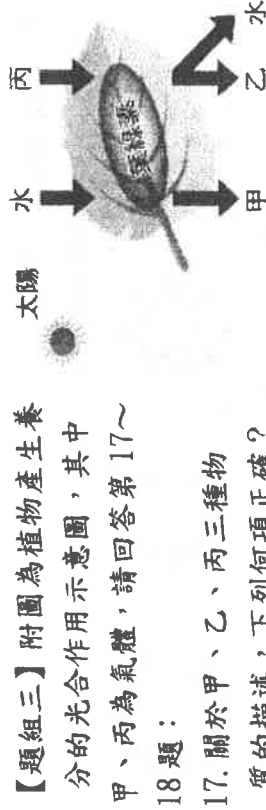 【題組三】附圖為植物產生養
分的光合作用示意圖，其中
甲、丙為氣體，請回答第 17～
18 題：
17. 關於甲、乙、丙三種物
質的描述，下列何項正確？
太陽
水
丙
葉綠素
甲
乙
水